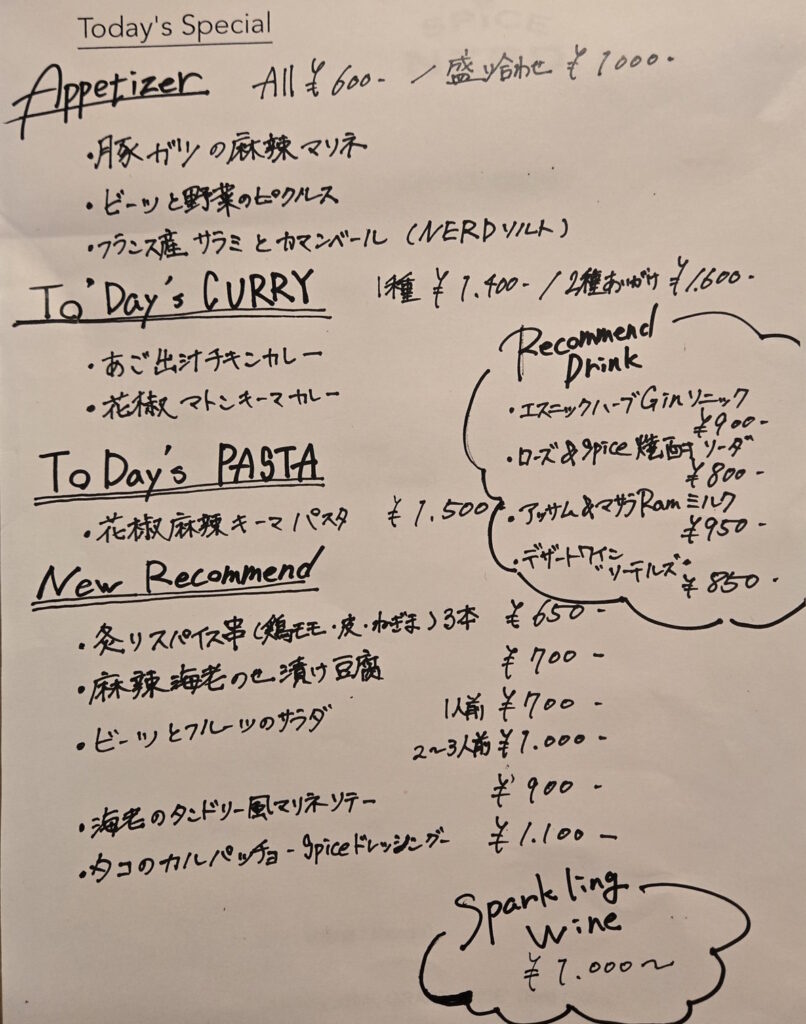 Today's Special
Appetizer All ¥600- / 盛り合わせ ¥1000-
・豚ガツの麻辣マリネ
・ビーツと野菜のピクルス
・フランス産サラミとカマンベール (NERDソルト)
To'Day's CURRY 1種 ¥1.400- / 2種あいがけ ¥1.600-
・あご出汁チキンカレー
・花椒マトンキーマカレー
To Day's PASTA
・花椒麻辣キーマパスタ ¥1.500
Recommend
Drink
・エスニックハーブGinソニック
¥900-
・ローズ&Spice焼酎ソーダ
¥800-
・アッサム&マサラRamミルク
¥950-
・デザートワイン
"ソーテルヌ"
¥850-
New Recommend
・炙りスパイス串(鶏モモ・皮・ねぎま)3本 ¥650-
・麻辣海老のせ漬け豆腐 ¥700-
・ビーツとフルーツのサラダ 1人前 ¥700-
2〜3人前 ¥1.000-
・海老のタンドリー風マリネソテー ¥900-
・タコのカルパッチョ-Spiceドレッシング- ¥1.100-
Sparkling
Wine
¥1.000〜